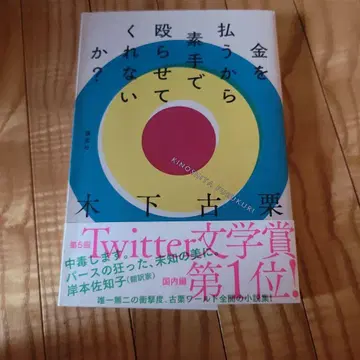 金を
払うから
素手で
殴らせて
くれない
か?
KINOSHITA FURUKURI
木下古栗
第5回
Twitter文学賞
国内編
第1位!
中毒します。
パースの狂った、未知の美に
岸本佐知子(翻訳家)
唯一無二の衝撃度。古栗ワールド全開の小説集!